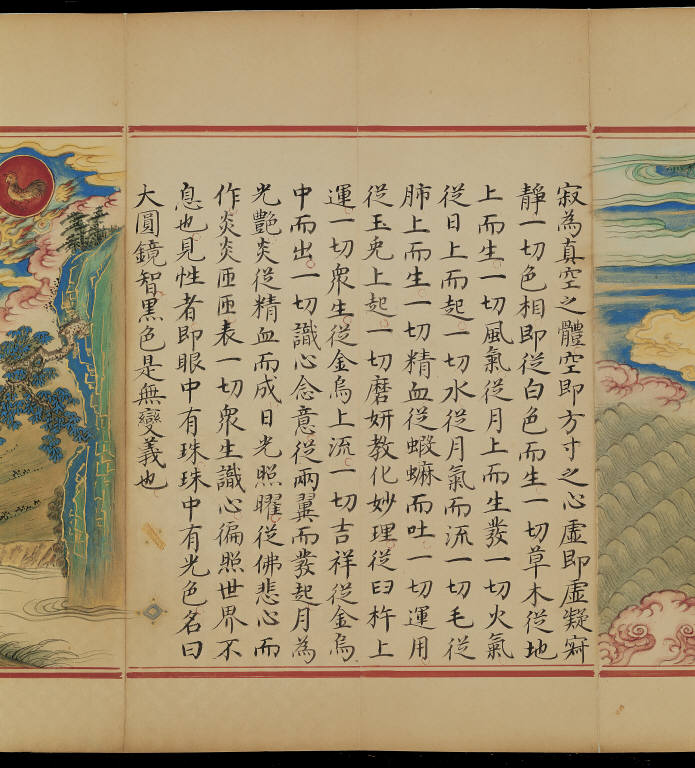 寂為真空之體空即方寸之心虛即虛凝寂
靜一切色相即從白色而生一切草木從地
上而生一切風氣從月上而生發一切火氣
從日上而起一切水從月氣而流一切毛從
肺上而生一切精血從蝦蟆而吐一切運用
從玉兎上起一切磨妍教化妙理從臼杵上
運一切衆生從金烏上流一切吉祥從金烏
中而出一切識心念意從兩翼而發起月為
光艷炎從精血而成日光照曜從佛悲心而
作炎炎匝匝表一切衆生識心徧照世界不
息也見性者即眼中有珠珠中有光色名曰
大圓鏡智黑色是無變義也